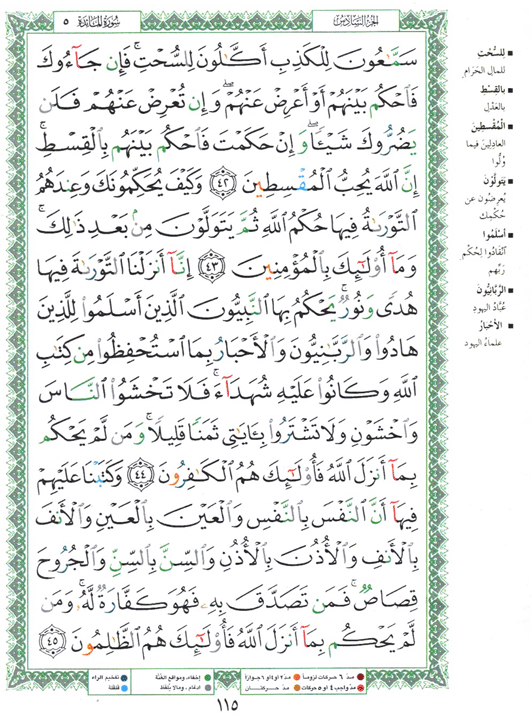 الجزء السادس
سورة المائدة ٥
سَمَّٰعُونَ لِلْكَذِبِ أَكَّٰلُونَ لِلسُّحْتِ ۚ فَإِن جَآءُوكَ
فَٱحْكُم بَيْنَهُمْ أَوْ أَعْرِضْ عَنْهُمْ ۖ وَإِن تُعْرِضْ عَنْهُمْ فَلَن
يَضُرُّوكَ شَيْـًٔا ۖ وَإِنْ حَكَمْتَ فَٱحْكُم بَيْنَهُم بِٱلْقِسْطِ ۚ
إِنَّ ٱللَّهَ يُحِبُّ ٱلْمُقْسِطِينَ ٤٢ وَكَيْفَ يُحَكِّمُونَكَ وَعِندَهُمُ
ٱلتَّوْرَىٰةُ فِيهَا حُكْمُ ٱللَّهِ ثُمَّ يَتَوَلَّوْنَ مِنۢ بَعْدِ ذَٰلِكَ ۚ
وَمَآ أُو۟لَٰٓئِكَ بِٱلْمُؤْمِنِينَ ٤٣ إِنَّآ أَنزَلْنَا ٱلتَّوْرَىٰةَ فِيهَا
هُدًى وَنُورٌ ۚ يَحْكُمُ بِهَا ٱلنَّبِيُّونَ ٱلَّذِينَ أَسْلَمُوا۟ لِلَّذِينَ
هَادُوا۟ وَٱلرَّبَّٰنِيُّونَ وَٱلْأَحْبَارُ بِمَا ٱسْتُحْفِظُوا۟ مِن كِتَٰبِ
ٱللَّهِ وَكَانُوا۟ عَلَيْهِ شُهَدَآءَ ۚ فَلَا تَخْشَوُا۟ ٱلنَّاسَ
وَٱخْشَوْنِ وَلَا تَشْتَرُوا۟ بِـَٔايَٰتِى ثَمَنًا قَلِيلًا ۚ وَمَن لَّمْ يَحْكُم
بِمَآ أَنزَلَ ٱللَّهُ فَأُو۟لَٰٓئِكَ هُمُ ٱلْكَٰفِرُونَ ٤٤ وَكَتَبْنَا عَلَيْهِمْ
فِيهَآ أَنَّ ٱلنَّفْسَ بِٱلنَّفْسِ وَٱلْعَيْنَ بِٱلْعَيْنِ وَٱلْأَنفَ
بِٱلْأَنفِ وَٱلْأُذُنَ بِٱلْأُذُنِ وَٱلسِّنَّ بِٱلسِّنِّ وَٱلْجُرُوحَ
قِصَاصٌ ۚ فَمَن تَصَدَّقَ بِهِۦ فَهُوَ كَفَّارَةٌ لَّهُۥ ۚ وَمَن
لَّمْ يَحْكُم بِمَآ أَنزَلَ ٱللَّهُ فَأُو۟لَٰٓئِكَ هُمُ ٱلظَّٰلِمُونَ ٤٥
■ لِلسُّحْتِ
للمال الحَرَامِ
■ بِالقِسْطِ
بالعَدْلِ
■ المُقْسِطِينَ
العادِلينَ فيما
وُلُّوا
■ يَتَوَلَّوْنَ
يُعرِضُون عن
حُكْمِك
■ أَسْلَمُوا
انْقَادُوا لِحُكْمِ
رَبِّهم
■ الرَّبَّانِيُّونَ
عُبَّادُ اليهودِ
■ الأَحْبَارُ
علماءُ اليهود
مدّ ٦ حركات لزوماً مدّ ٢ أو ٤ أو ٦ جوازاً
مدّ واجب ٤ أو ٥ حركات مدّ حركتان
إخفاء، ومواقع الغُنّة تفخيم الراء
ادغام، وما لا يلفظ قلقلة
١١٥